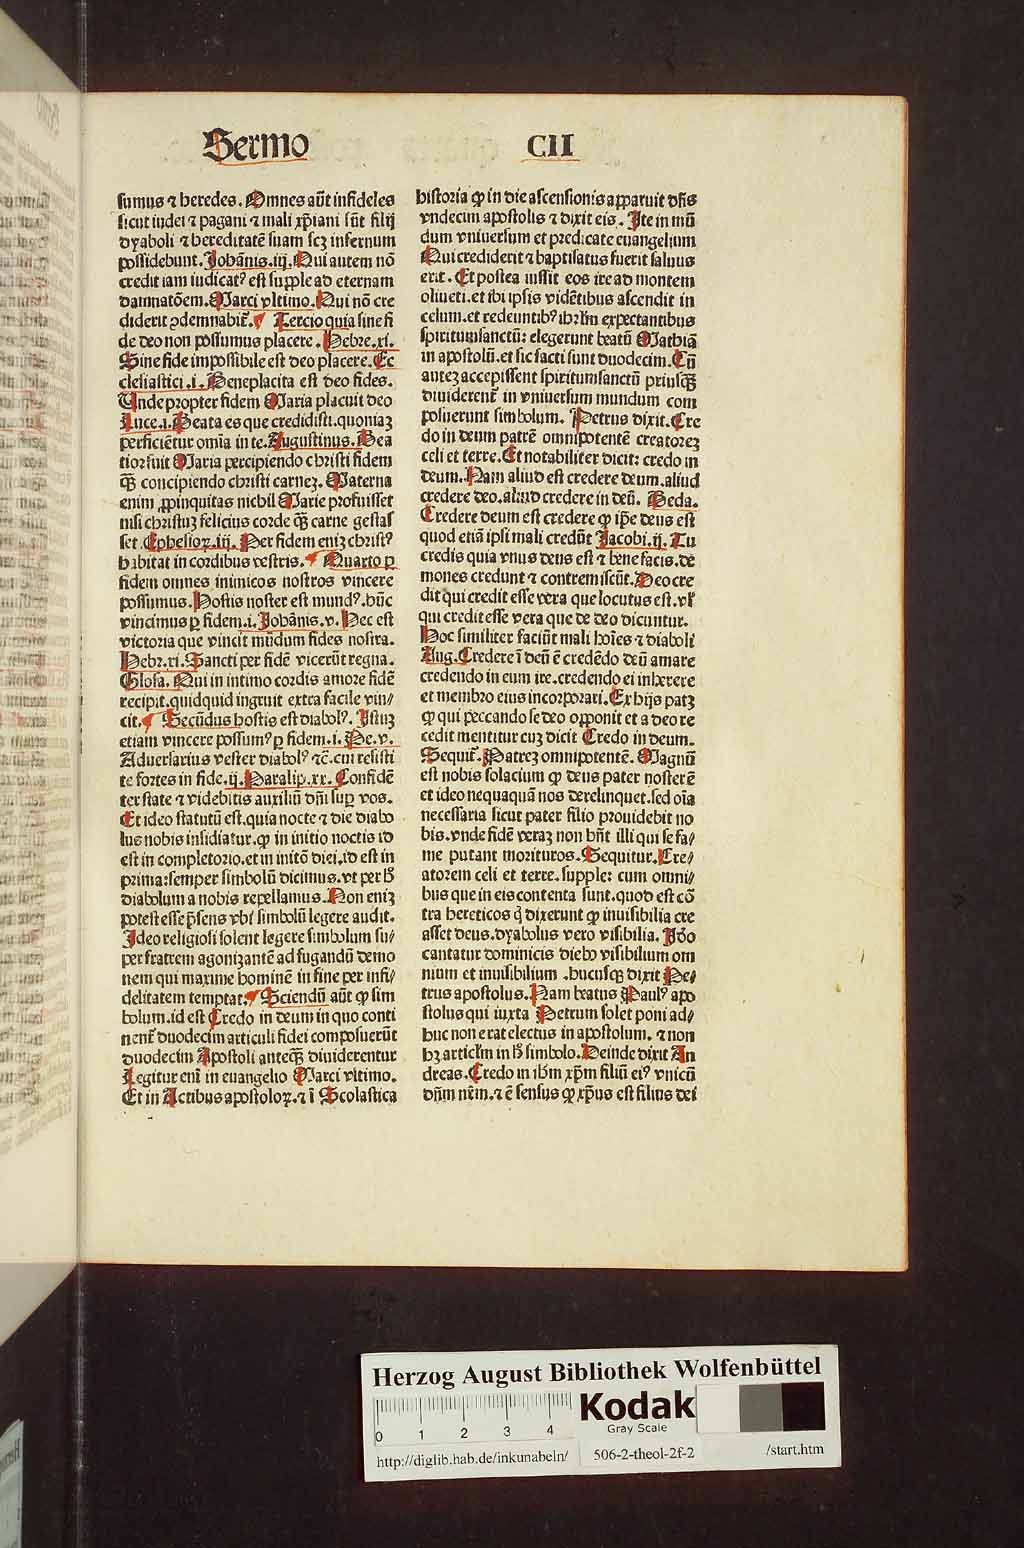 Sermo
CII
sumus ⁊ heredes. Omnes aūt infideles
sicut iudei ⁊ pagani ⁊ mali xp̄iani sūt filij
dyaboli ⁊ hereditatē suam scꝫ infernum
possidebunt. Johānis. iij. Qui autem nō
credit iam iudicatꝰ est supple ad eternam
damnatōem. Marci vltimo. Qui nō cre
diderit ꝯdemnabit᷑. Tercio quia sine fi
de deo non possumus placere. Hebre. xi.
Sine fide impossibile est deo placere. Ec
clesiastici. i. Beneplacita est deo fides.
Unde propter fidem Maria placuit deo
Luce. i. Beata es que credidisti. quoniaꝫ
perficiētur om̄ia in te. Augustinus. Bea
tior fuit Maria percipiendo christi fidem
qꝫ̄ concipiendo christi carneꝫ. Materna
enim ꝓpinquitas nichil Marie profuisset
nisi christuꝫ felicius corde qꝫ̄ carne gestas
set. Ephesioꝝ. iij. Per fidem eniꝫ christꝰ
habitat in cordibus vestris. Quarto ꝑ
fidem omnes inimicos nostros vincere
possumus. Hostis noster est mundꝰ. hūc
vincimus ꝑ fidem. i. Johānis. v. Hec est
victoria que vincit mūdum fides nostra.
Hebr. xi. Sancti per fidē vicerūt regna.
Glosa. Qui in intimo cordis amore fidē
recipit. quidquid ingruit extra facile vin/
cit. Secūdus hostis est diabolꝰ. Istuꝫ
etiam vincere possumꝰ ꝑ fidem. i. Pe. v.
Aduersarius vester diabolꝰ ⁊c̄. cui resisti
te fortes in fide. ij. Paralip. xx. Confidē
ter state ⁊ videbitis auxiliū dn̄i suꝑ vos.
Et ideo statutū est. quia nocte ⁊ die diabo
lus nobis insidiatur. ꝙ in initio noctis id
est in completorio. et in initō diei. id est in
prima: semper simbolū dicimus. vt per hͦ
diabolum a nobis repellamus. Non eniꝫ
potest esse p̄sens vbi simbolū legere audit.
Ideo religiosi solent legere simbolum su/
per fratrem agonizantē ad fugandū demo
nem qui maxime hominē in fine per infi/
delitatem temptat. Sciendū aūt ꝙ sim
bolum. id est Credo in deum in quo conti
nent᷑ duodecim articuli fidei composuerūt
duodecim Apostoli anteqꝫ̄ diuiderentur
Legitur eni in euangelio Marci vltimo.
Et in Actibus apostoloꝝ. ⁊ ī Scolastica
historia ꝙ in die ascensionis apparuit dn̄s
vndecim apostolis ⁊ dixit eis. Ite in mū
dum vniuersum et predicate euangelium
Qui crediderit ⁊ baptisatus fuerit saluus
erit. Et postea iussit eos ire ad montem
oliueti. et ibi ipsis vidētibus ascendit in
celum. et redeuntibꝰ ihrlm̄ expectantibus
spiritumsanctū: elegerunt beatū Mathiā
in apostolū. et sic facti sunt duodecim. Cū
auteꝫ accepissent spiritumsanctū priusqꝫ̄
diuiderent᷑ in vniuersum mundum com
posuerunt simbolum. Petrus dixit. Cre
do in deum patrē omnipotentē creatoreꝫ
celi et terre. Et notabiliter dicit: credo in
deum. Nam aliud est credere deum. aliud
credere deo. aliud credere in deū. Beda.
Credere deum est credere ꝙ ip̄e deus est
quod etiā ipsi mali credūt Jacobi. ij. Tu
credis quia vnus deus est ⁊ bene facis. de
mones credunt ⁊ contremiscūt. Deo cre
dit qui credit esse vera que locutus est. vl᷑
qui credit esse vera que de deo dicuntur.
Hoc similiter faciūt mali hoīes ⁊ diaboli
Aug. Credere ī deū ē credēdo deū amare
credendo in eum ire. credendo ei inherere
et membro eius incorporari. Ex hijs patꝫ
ꝙ qui peccando se deo opponit et a deo re
cedit mentitur cuꝫ dicit Credo in deum.
Sequit᷑. Patreꝫ omnipotentē. Magnū
est nobis solacium ꝙ deus pater noster ē
et ideo nequaquā nos derelinquet. sed oīa
necessaria sicut pater filio prouidebit no
bis. vnde fidē veraꝫ non hn̄t illi qui se fa/
me putant morituros. Sequitur. Cre/
atorem celi et terre. supple: cum omni/
bus que in eis contenta sunt. quod est cō
tra hereticos q̇ dixerunt ꝙ inuisibilia cre
asset deus. dyabolus vero visibilia. Ido
cantatur dominicis diebꝰ visibilium om
nium et inuisibilium. hucusqꝫ dixit Pe/
trus apostolus. Nam beatus Paulꝰ apo
stolus qui iuxta Petrum solet poni ad/
huc non erat electus in apostolum. ⁊ non
hꝫ articlm̄ in hͦ simbolo. Deinde dixit An
dreas. Credo in ihm̄ xp̄m filiū eiꝰ vnicū
dn̄m nr̄m. ⁊ ē sensus ꝙ xp̄us est filius dei
Herzog August Bibliothek Wolfenbüttel
0 1 2 3 4
Kodak
Gray Scale
http://diglib.hab.de/inkunabeln/ 506-2-theol-2f-2 /start.htm